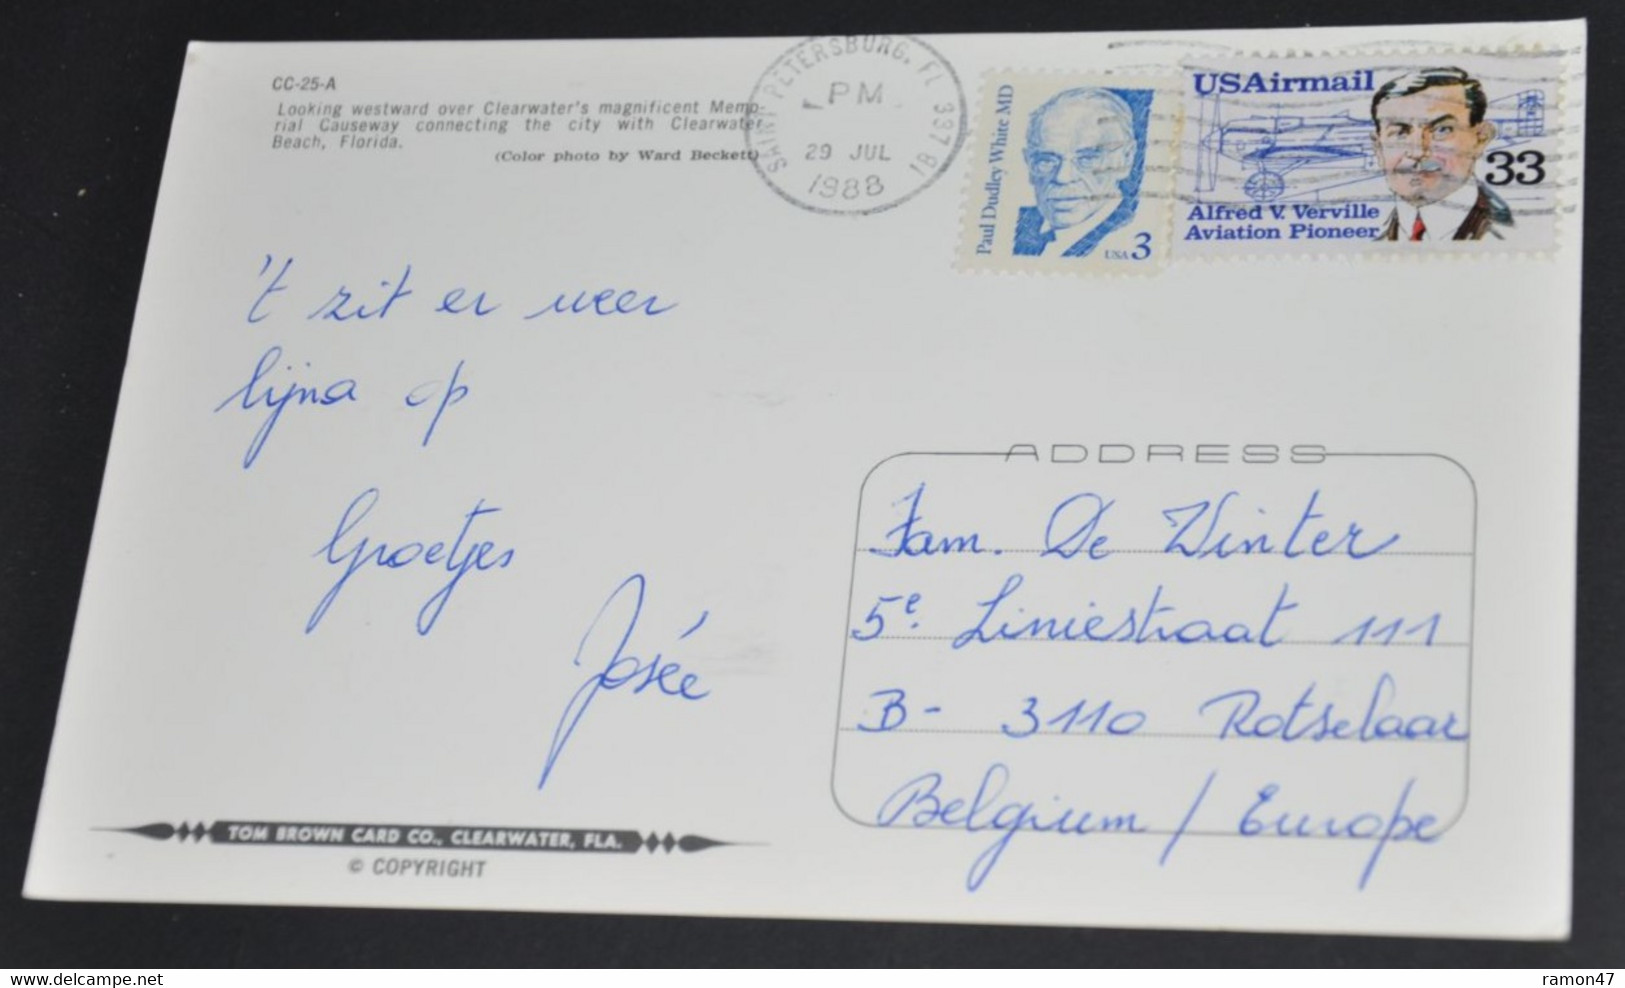 CC-25-A
Looking westward over Clearwater's magnificent Memo-
rial Causeway connecting the city with Clearwater
Beach, Florida.
(Color photo by Ward Beckett)
SAINT PETERSBURG, FL 337 81
PM
29 JUL
1988
Paul Dudley White MD
USA 3
USAirmail
33
Alfred V. Verville
Aviation Pioneer
't zit er weer
lijna op
Groetjes
Josée
ADDRESS
Fam. De Winter
5e. Liniestraat 111
B- 3110 Rotselaar
Belgium / Europe
TOM BROWN CARD CO., CLEARWATER, FLA.
© COPYRIGHT
delcampe.net
ramon47